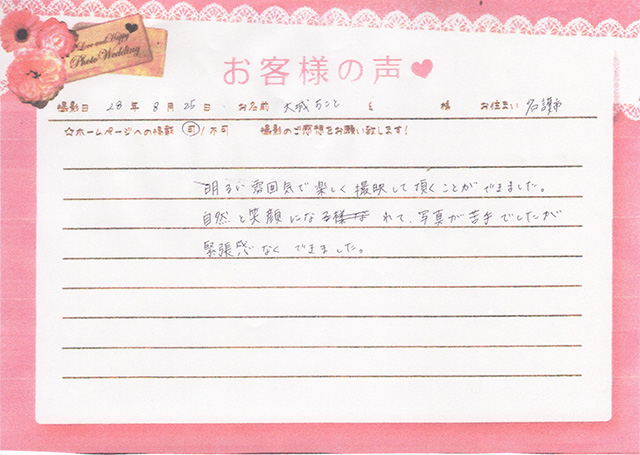 Love and Happy
Photo Wedding
お客様の声♥
撮影日 28年 8月 25日 お名前 大城 まこと 様 お住まい 名護市
☆ホームページへの掲載 可 / 不可 撮影のご感想をお願い致します!
明るい雰囲気で楽しく撮影して頂くことができました。
自然と笑顔になれて、写真が苦手でしたが
緊張感なくできました。